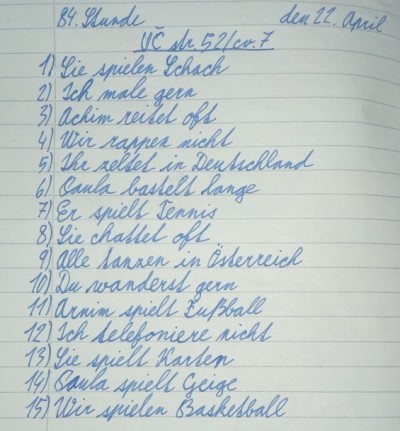 84. Stunde den 22. April
UČ str. 52/cv. 7
1) Sie spielen Schach
2) Ich male gern
3) Achim reitet oft
4) Wir rappen nicht
5) Ihr zeltet in Deutschland
6) Paula bastelt lange
7) Er spielt Tennis
8) Sie chattet oft
9) Alle tanzen in Österreich
10) Du wanderst gern
11) Armin spielt Fußball
12) Ich telefoniere nicht
13) Sie spielt Karten
14) Paula spielt Geige
15) Wir spielen Basketball